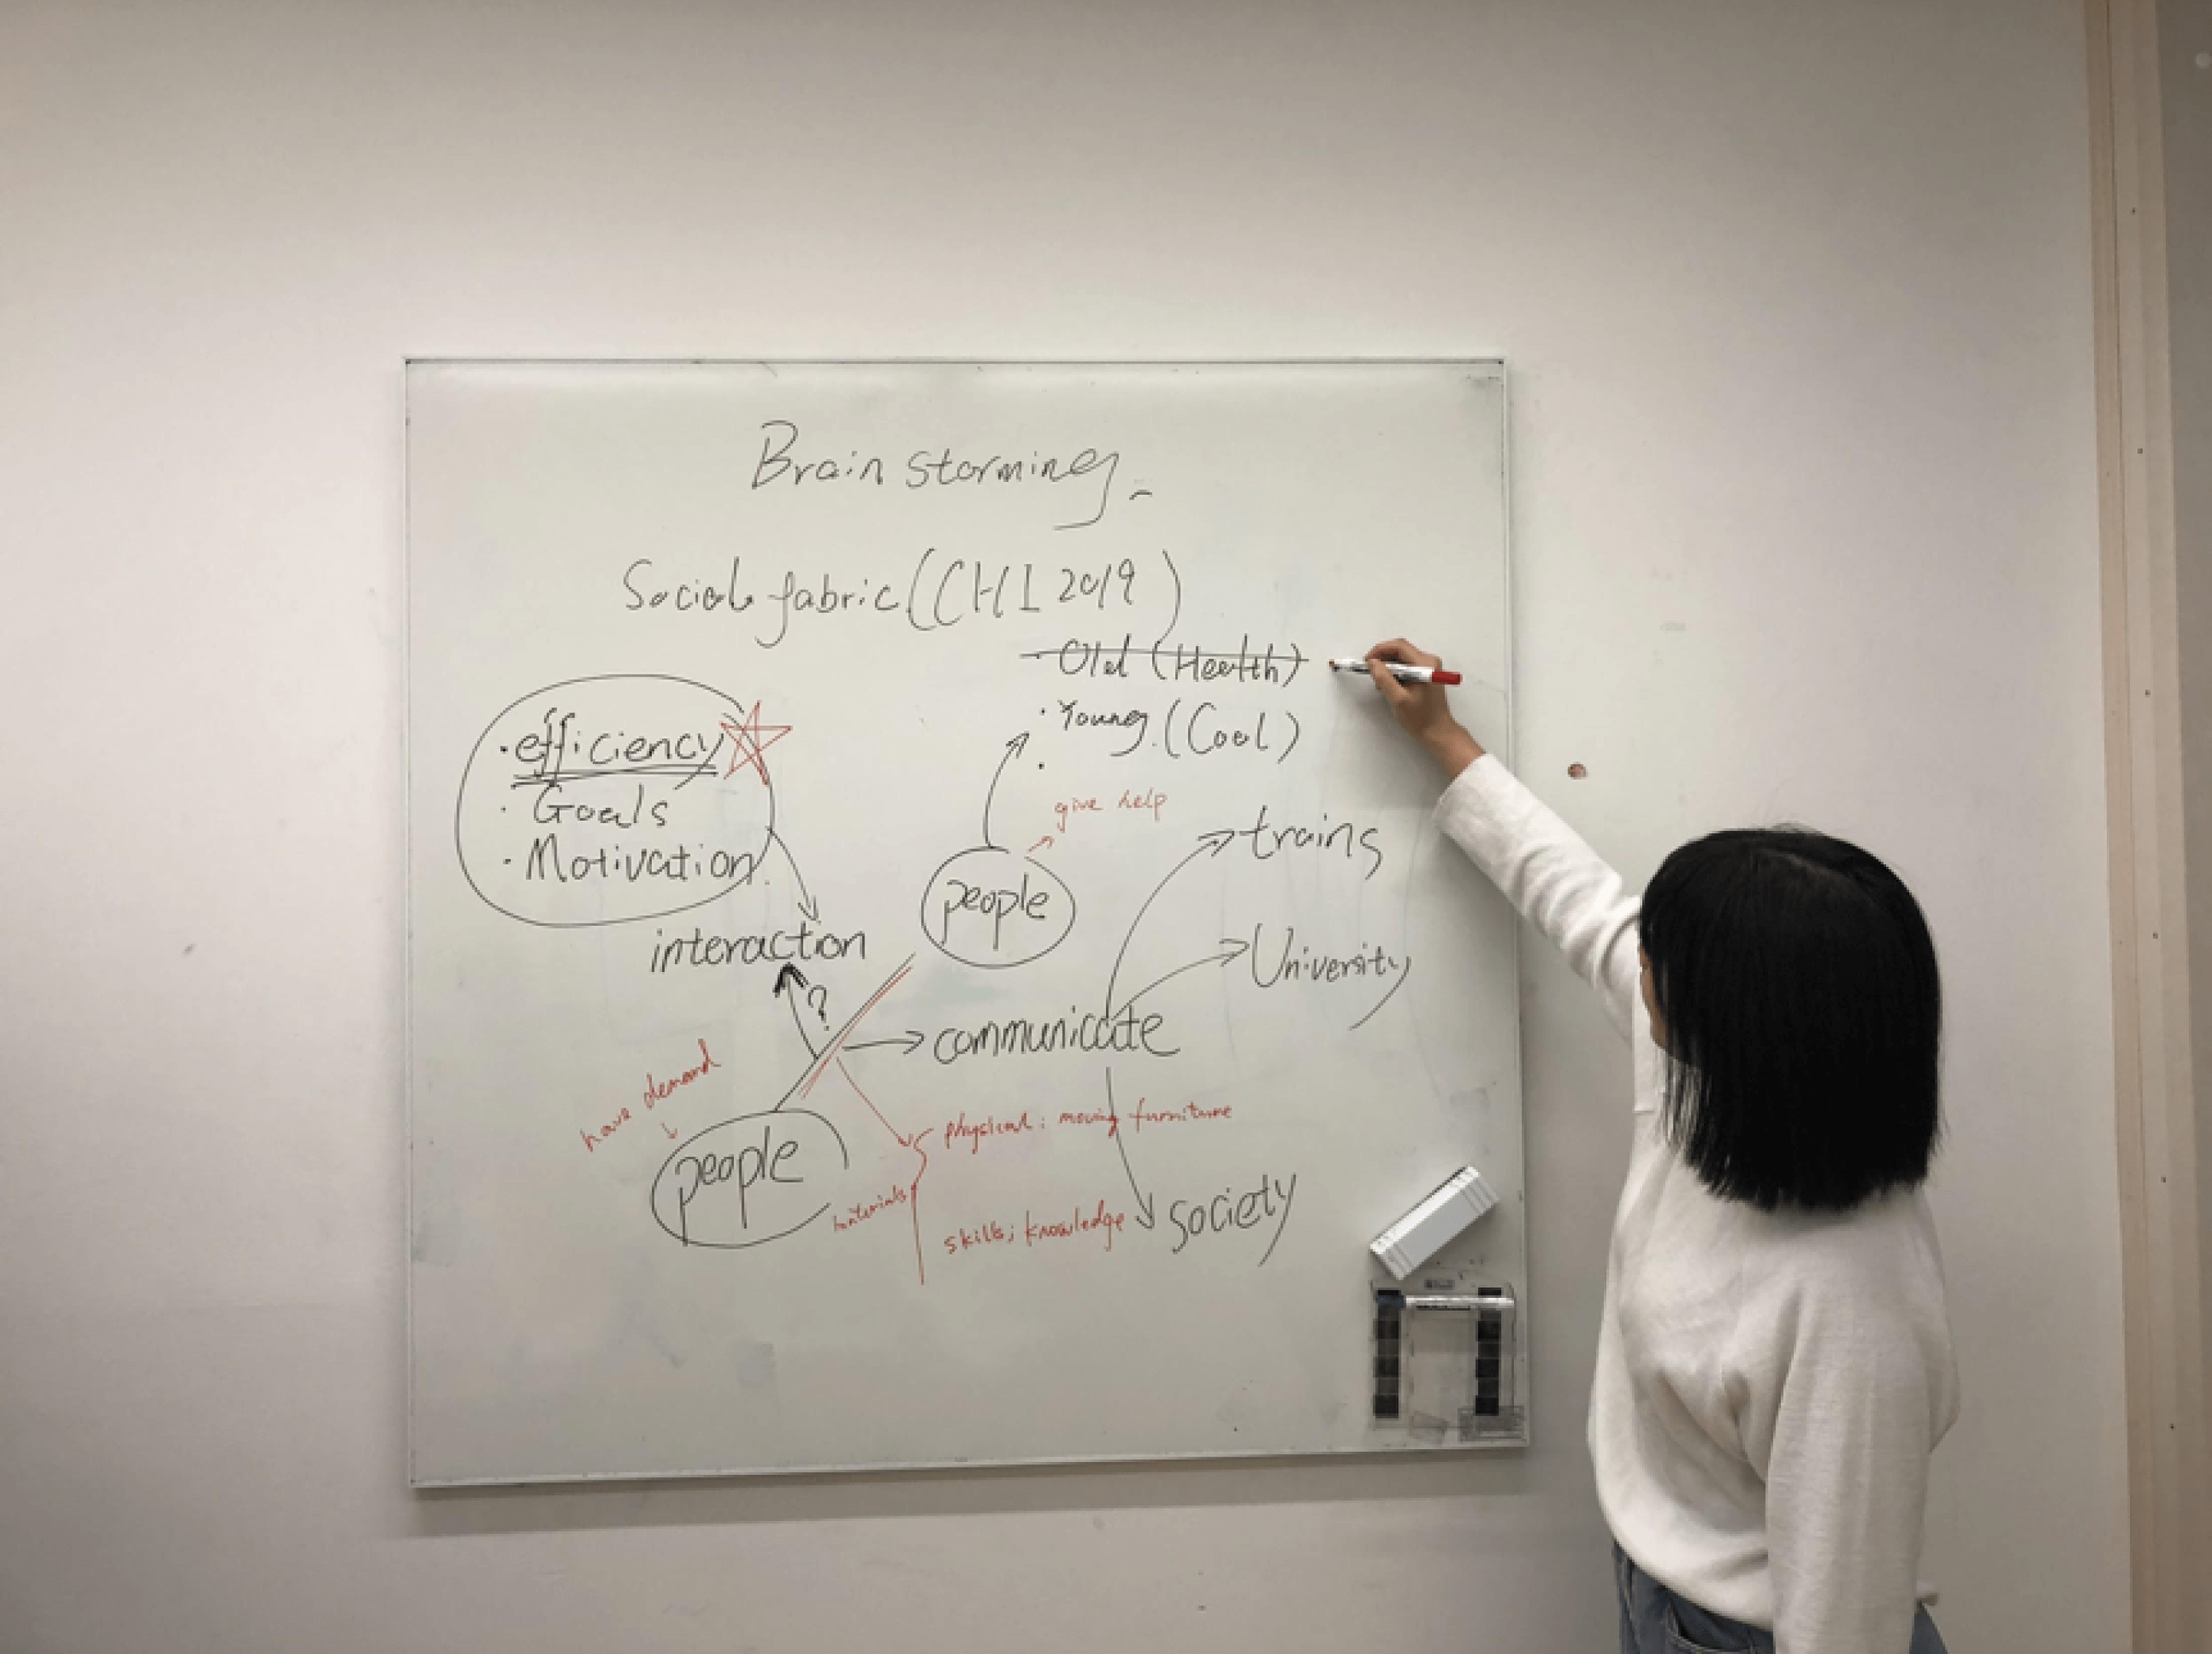 Brain storming
Social fabric (CHI 2019)
· Old (Health)
· Young (Cool)
·
· efficiency
· Goals
· Motivation
give help
people
trains
interaction
University
?
communicate
have demand
people
physical: moving furniture
materials
skills; knowledge
society